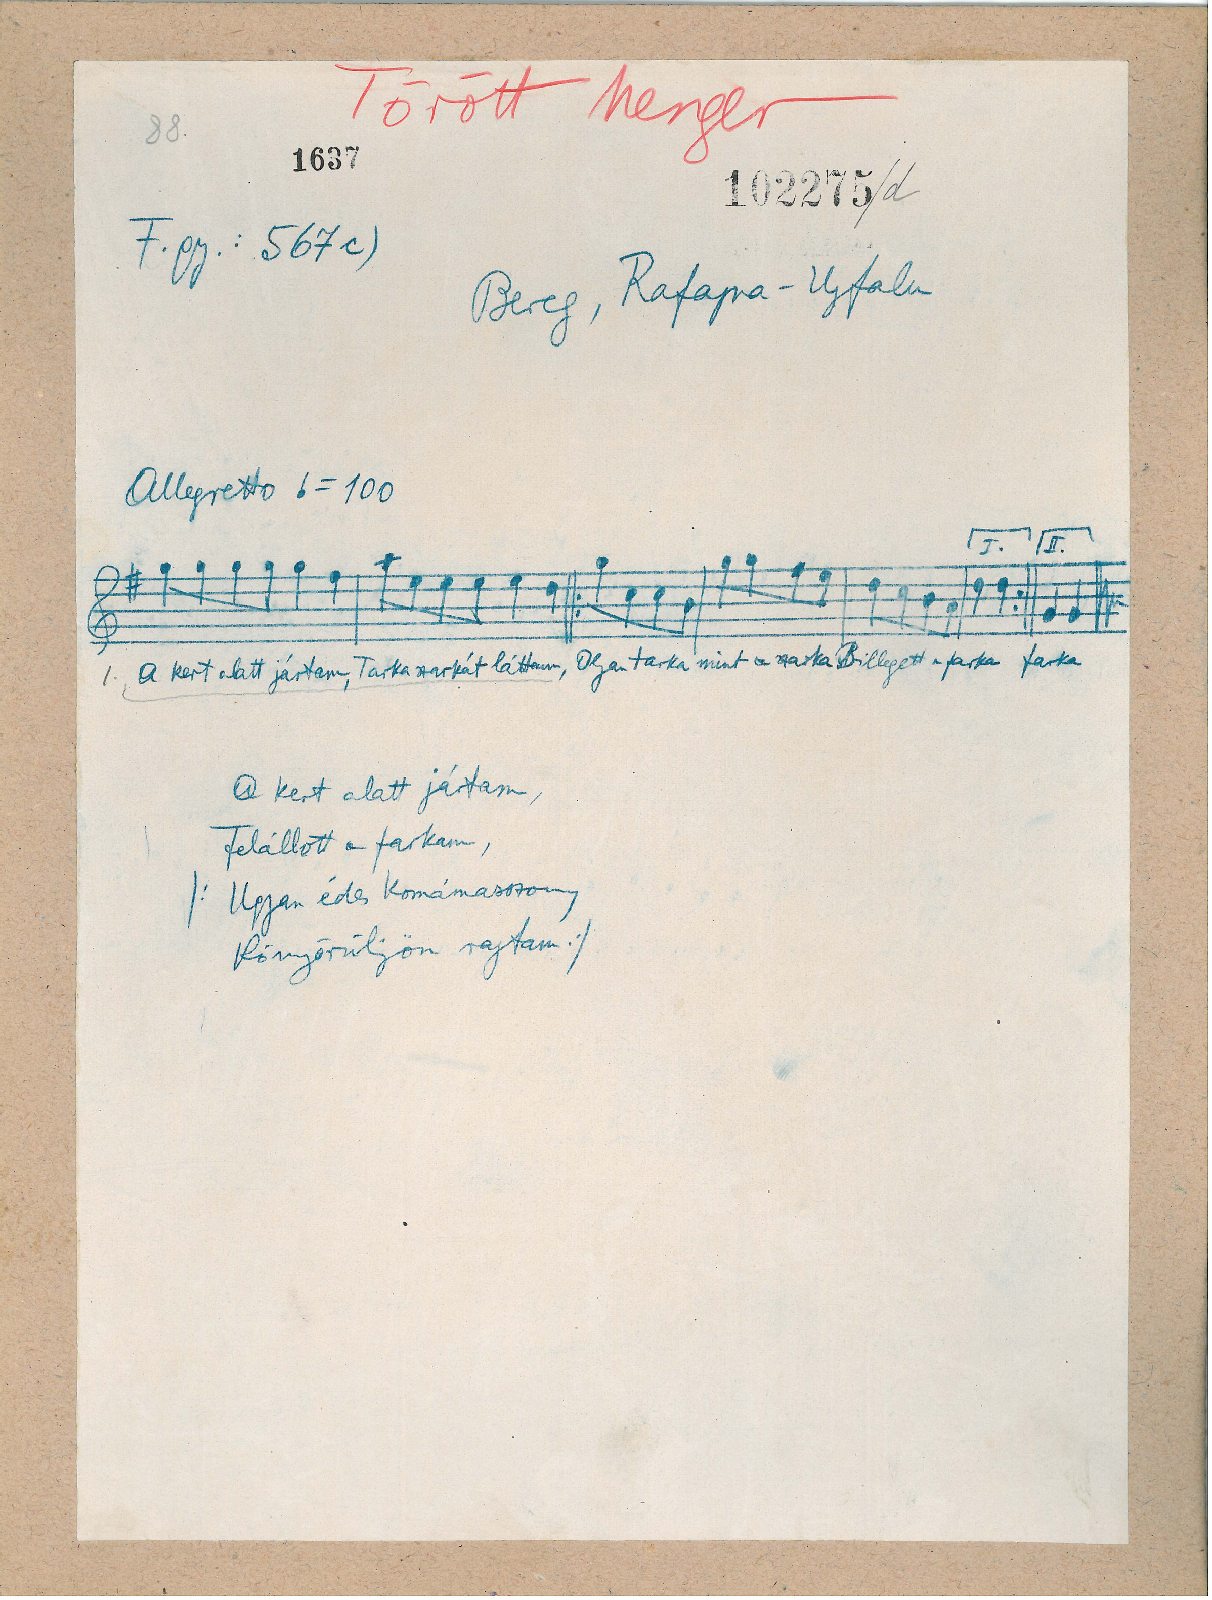 Törött henger
88.
1637
102275/d
F. gy.: 567 c)
Bereg, Rafajna-Ujfalu
Allegretto = 100
I. II.
1. A kert alatt jártam, Tarka szarkát láttam, Olyan tarka mint a szarka Billegett a farka farka
A kert alatt jártam,
Felállott a farkam,
/: Ugyan édes Komámasszony
Könyörüljön rajtam :/